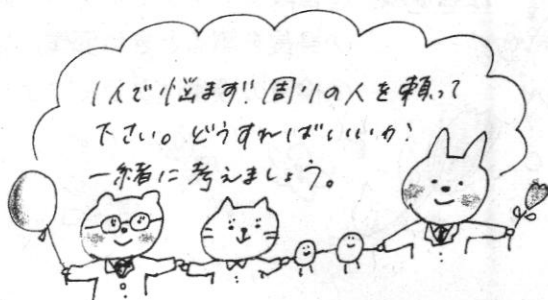 1人で悩まず!周りの人を頼って
下さい。どうすればいいか?
一緒に考えましょう。